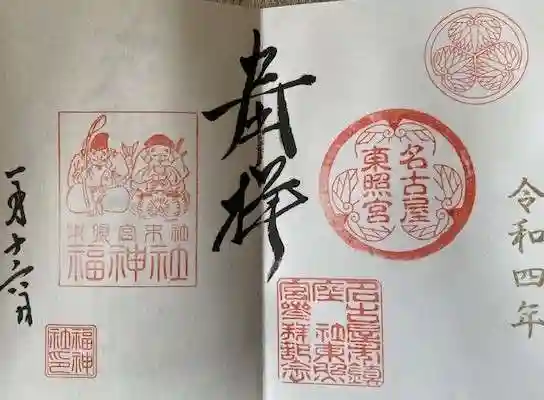 令和四年
名古屋
東照宮
名古屋市鎮
座 社東照
宮参拝記念
奉拝
東照宮末社
福神社
福神
社印
一月十六日